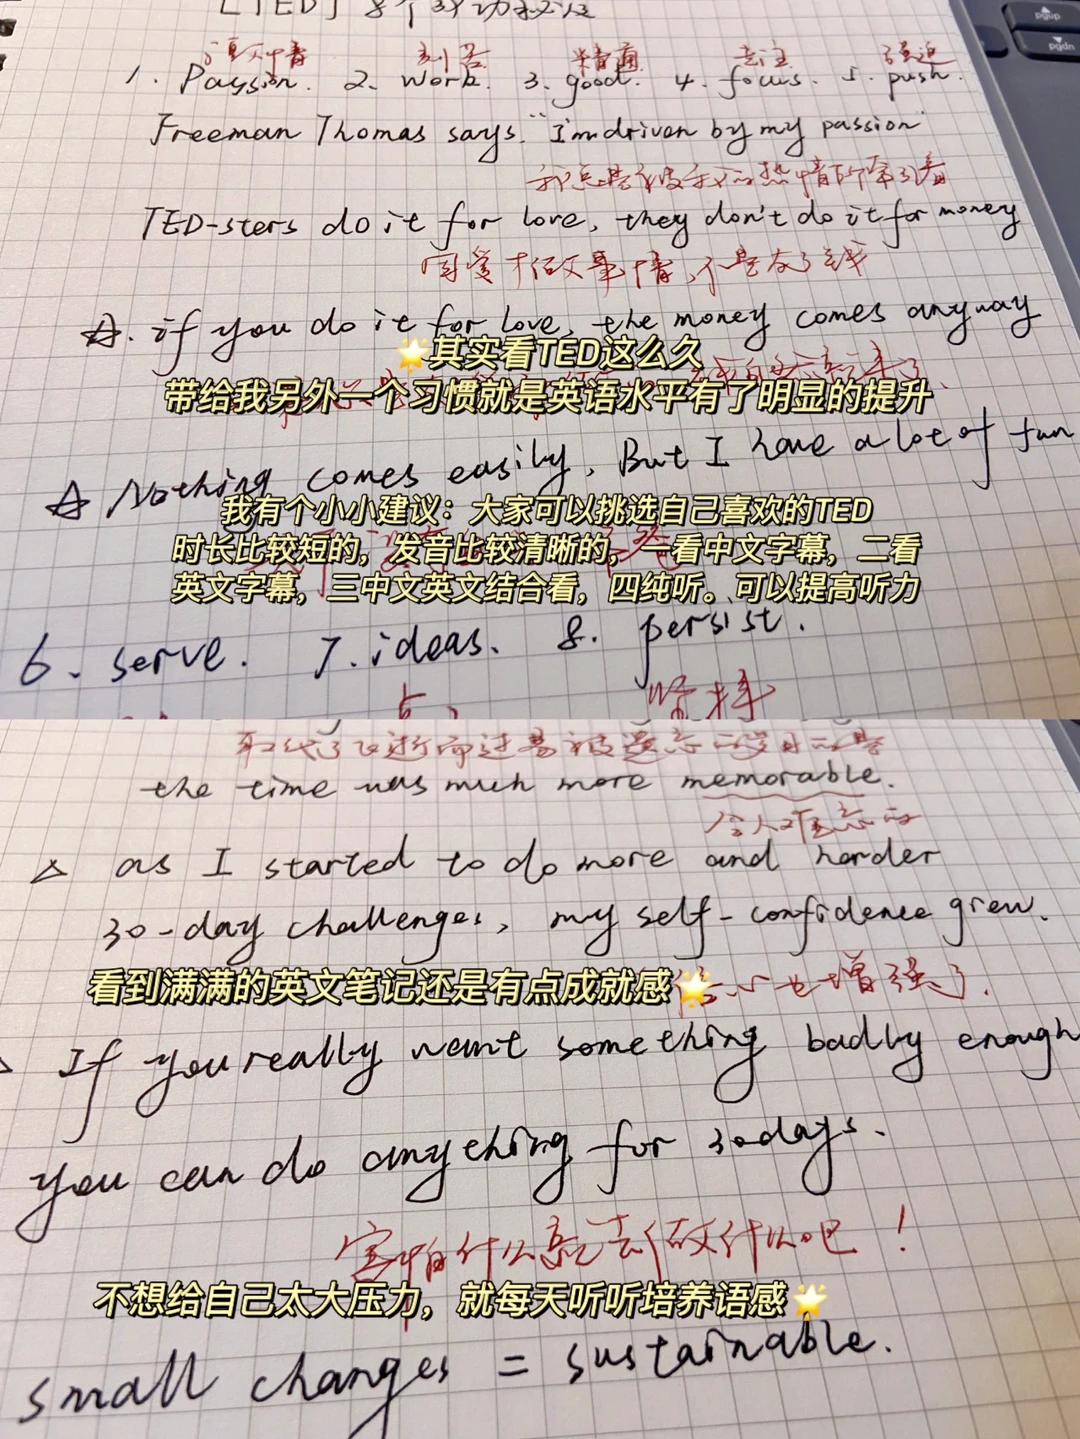 「TED」8个成功秘诀
热情 刻苦 精通 专注 强迫
1. Passion. 2. work. 3. good. 4. focus. 5. push.
Freeman Thomas says. "I'm driven by my passion"
我总是被我的热情所牵引着
TED-sters do it for love, they don't do it for money
因爱才做事情,不是为了钱
☆. if you do it for love, the money comes anyway
🌟其实看TED这么久
带给我另外一个习惯就是英语水平有了明显的提升
☆ Nothing comes easily, But I have a lot of fun
我有个小小建议:大家可以挑选自己喜欢的TED
时长比较短的,发音比较清晰的,一看中文字幕,二看
英文字幕,三中文英文结合看,四纯听。可以提高听力
6. serve. 7. ideas. 8. persist.
坚持
取代了飞逝而过易被遗忘的岁月的是
the time was much more memorable.
令人难忘的
△ as I started to do more and harder
30-day challenges, my self-confidence grew.
看到满满的英文笔记还是有点成就感🌟
心也增强了.
If you really want something badly enough
you can do anything for 30days.
害怕什么就去做什么吧!
不想给自己太大压力,就每天听听培养语感🌟
small changes = sustainable.